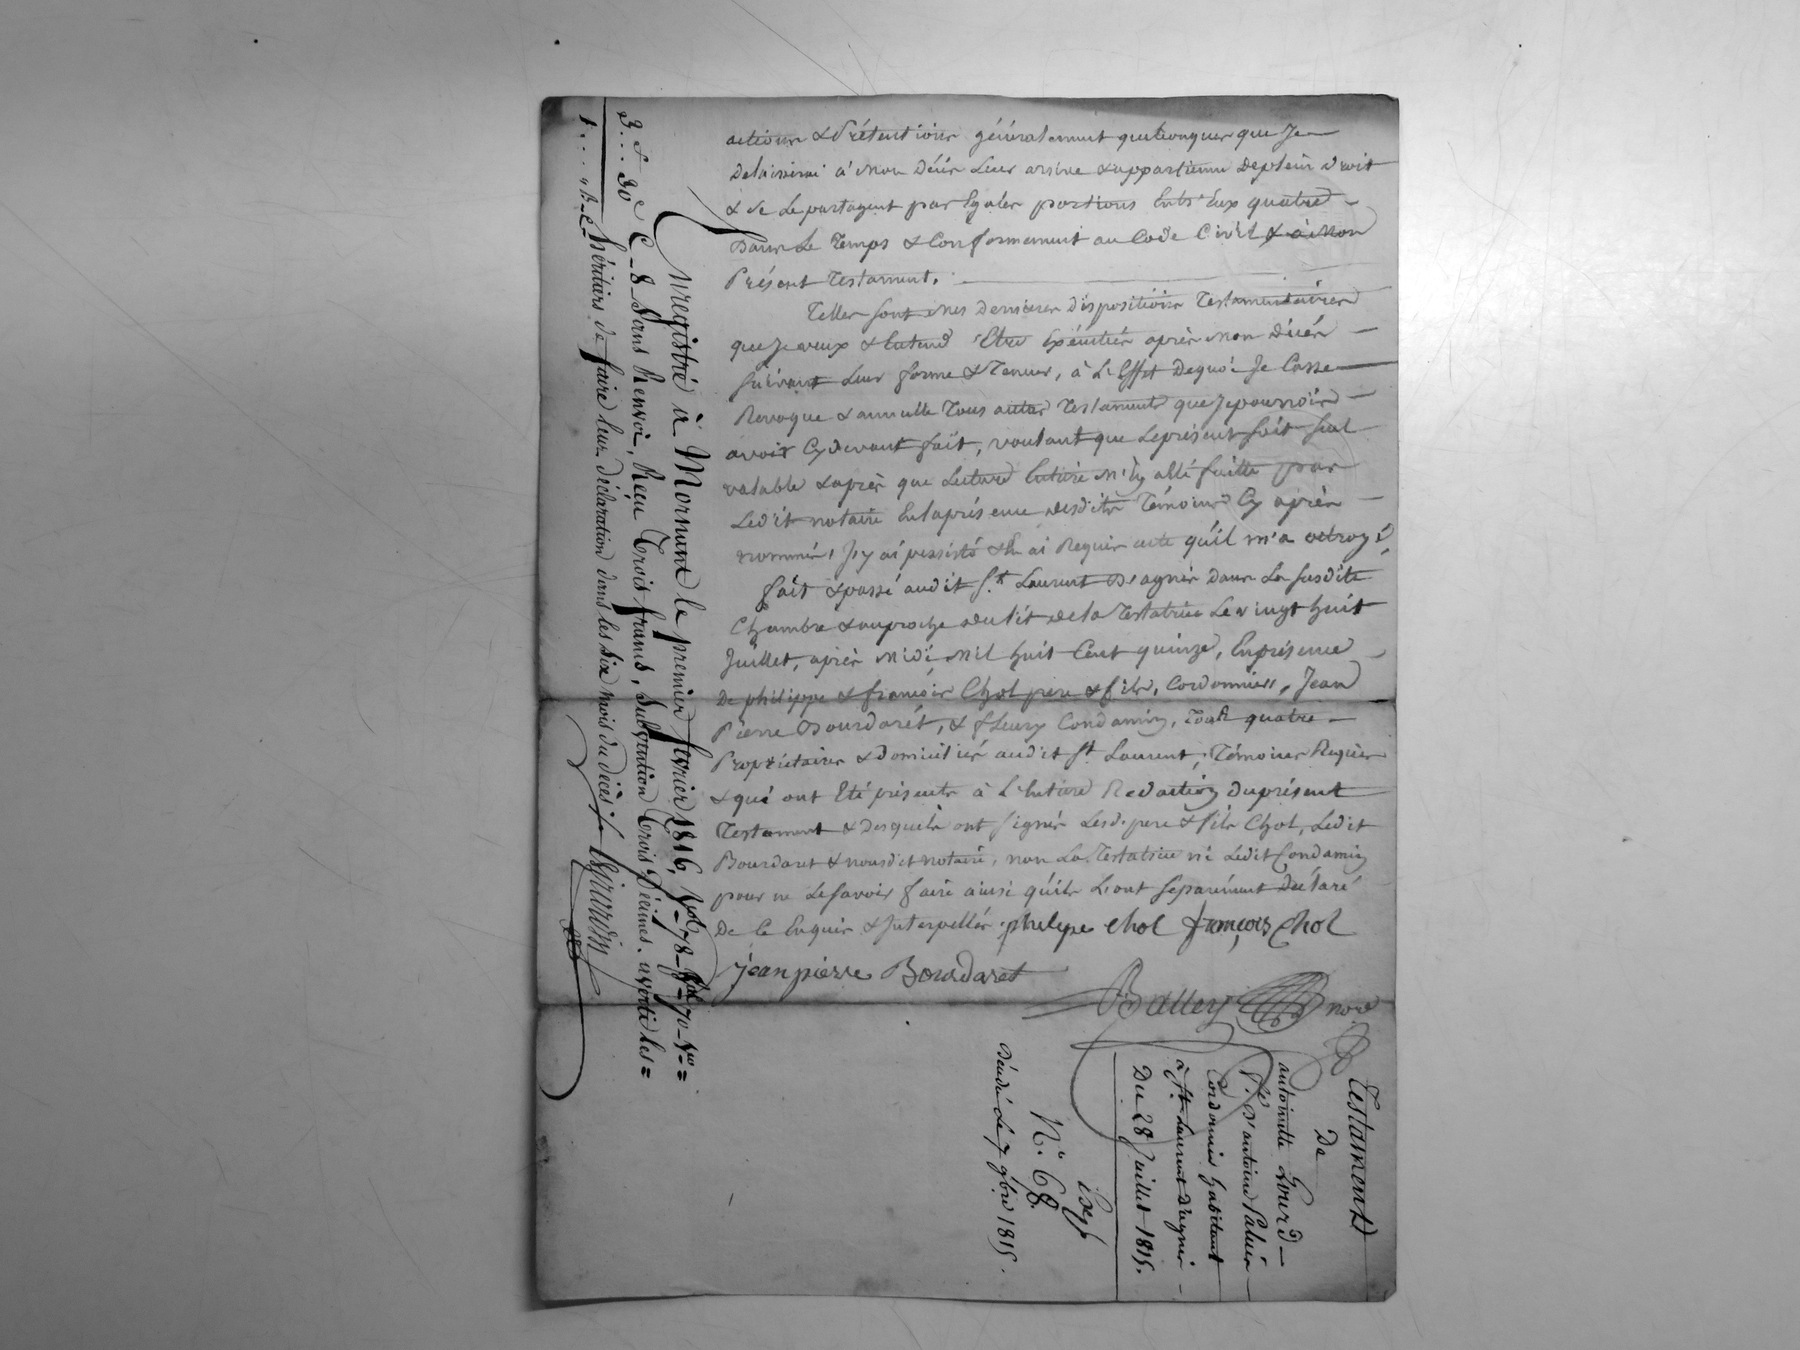 actions & Prétentions généralement quelconques que Je
delaisserai à mon Décès Leur arrive & appartienne De plein Droit
& se Le partagent par Egales portions Entr'Eux quatre
Dans Le Temps & Conformement au Code Civil & à Mon
Présent Testament.
Telles sont mes dernieres dispositions Testamentaires
que Je veux & Entend Etre Exécutées après mon Décés
suivant Leur forme & Teneur, à L'Effet Dequoi Je Casse
Revoque & annulle Tous autres Testaments que Je pourrois
avoir Cydevant fait, voulant que Le présent soit seul
valable & après que Lecture Entière m'En a Eté faitte par
Ledit notaire En la présence desdits Témoins Cy après
nommés, J'y ai persisté & En ai Requis acte qu'il m'a octroyé,
fait & passé audit St. Laurent D'agnis dans La susdite
Chambre & auproche du lit de la Testatrice Le vingt huit
Juillet, après Midi, Mil huit Cent quinze, En présence
De philippe & françois Chol pere & fils, Cordonniers, Jean
Pierre Bourdarét, & fleury Condamin, Tous quatre
Propriétaires & domiciliés audit St. Laurent, Témoins Requis
& qui ont Eté présents à L'Entiere Redaction du présent
Testament & desquels ont signés Lesd. pere & fils Chol, Ledit
Bourdaret & nousdit notaire, non La Testatrice ni Ledit Condamin
pour ne Le savoir faire ainsi qu'ils L'ont séparément Déclaré
De ce Enquis & Interpellés. phelype chol françois Chol
jean pierre Bourdaret
Balley nore
Enregistré à Mornant le premier fevrier 1816, Vol. 78 - fol. 70 - Vo =
C - 8 Sans Renvoi, Reçu Trois francs, Subvention Trois Décimes. averti les =
héritiers de faire leur déclaration dans les six mois du décès
3.. f 30 c
Testament
De
antoinette Gourd
fe. d'antoine
Cordonnier habitant
à St. Laurent d'agnis
Du 28 Juillet 1815.
N.° 68.
Le 7 gbre 1815.